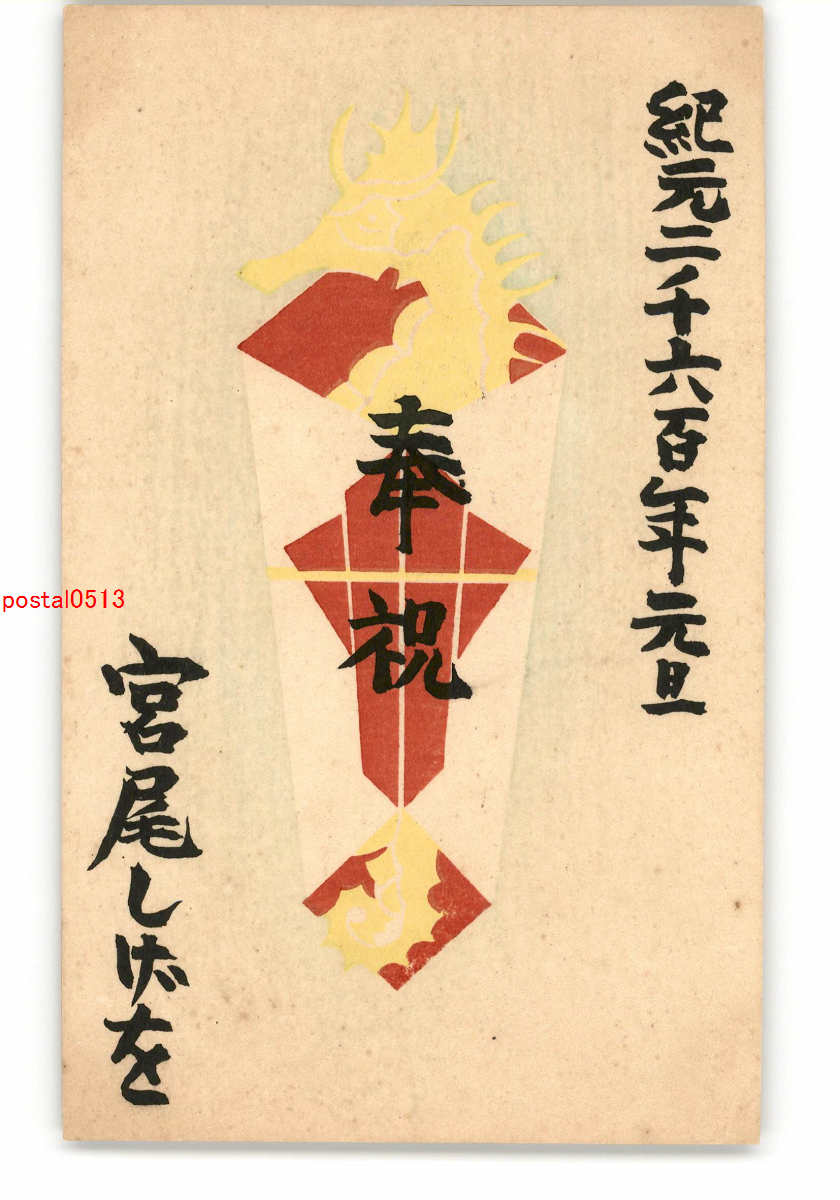 紀元二千六百年元旦
奉祝
宮尾しげを
postal0513